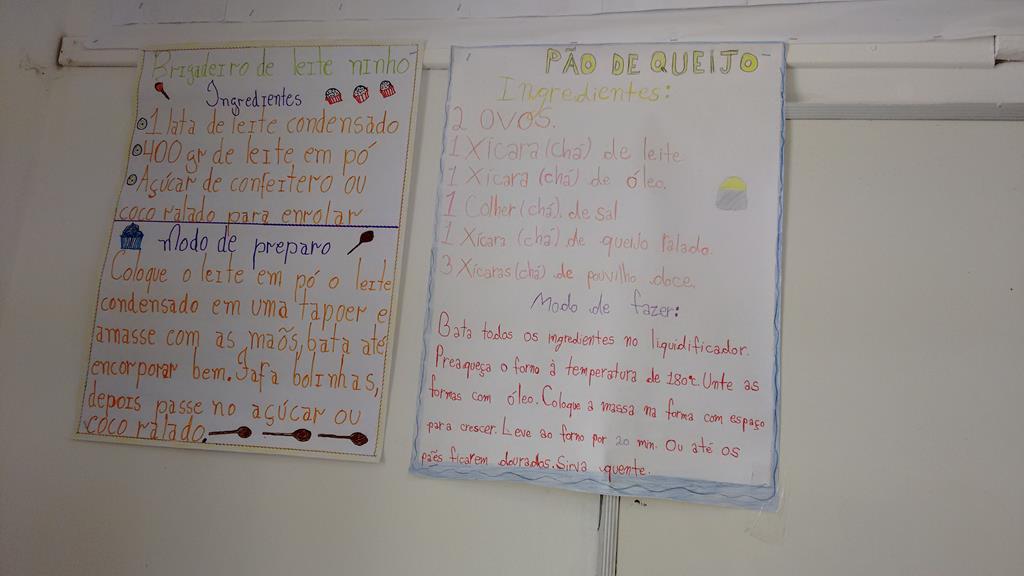 Brigadeiro de leite ninho
Ingredientes
1 lata de leite condensado
400 gr de leite em pó
Açúcar de confeitero ou
coco ralado para enrolar
Modo de preparo
Coloque o leite em pó o leite
condensado em uma tapoer e
amasse com as maõs, bata até
encorporar bem. Fafa bolinhas,
depois passe no açúcar ou
coco ralado.
PÃO DE QUEIJO
Ingredientes:
2 ovos.
1 Xícara (chá) de leite
1 Xícara (chá) de óleo.
1 Colher (chá). de sal
1 Xícara (chá) de queijo ralado.
3 Xícaras (chá) de pouvilho doce.
Modo de fazer:
Bata todos os ingredientes no liquidificador.
Preaqueça o forno à temperatura de 180°c. Unte as
formas com óleo. Coloque a massa na forma com espaço
para crescer. Leve ao forno por 20 min. Ou até os
paẽs ficarem dourados. Sirva quente.